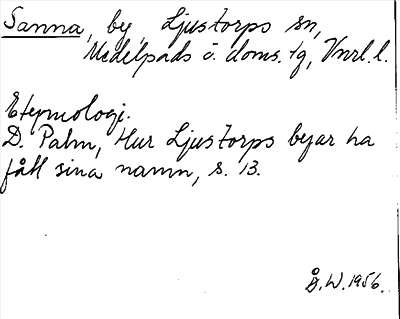 Sanna, by, Ljustorps sn,
Medelpads ö. doms. tg, Vnrl. l.
Etymologi.
D. Palm, Hur Ljustorps byar ha
fått sina namn, s. 13.
Å.W. 1956.